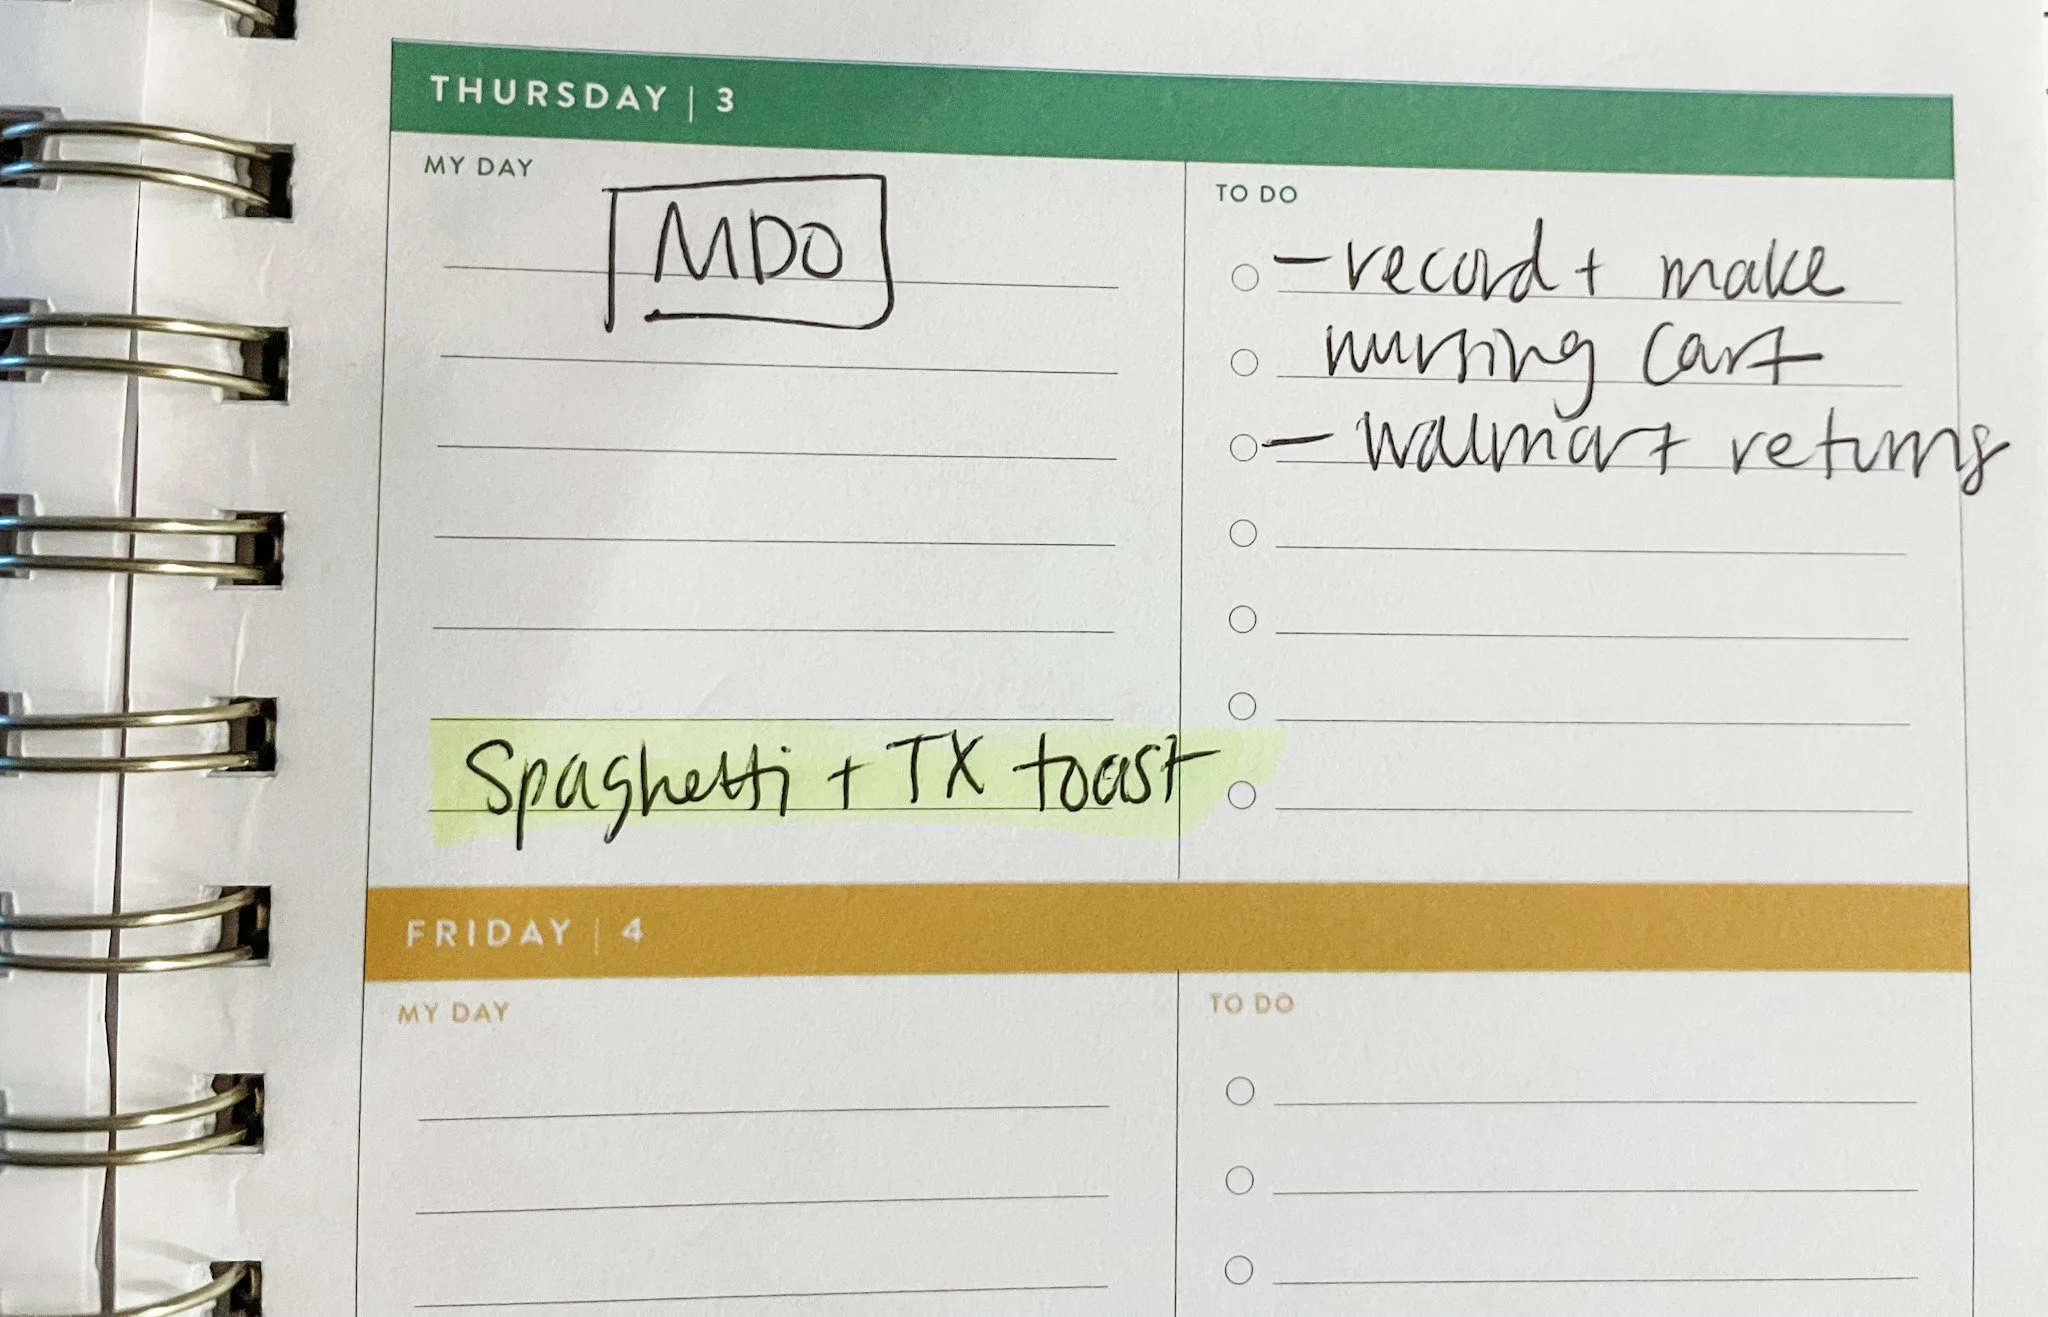 THURSDAY | 3
MY DAY
MDO
Spaghetti + TX toast
TO DO
- record + make
nursing cart
- walmart returns
FRIDAY | 4
MY DAY
TO DO